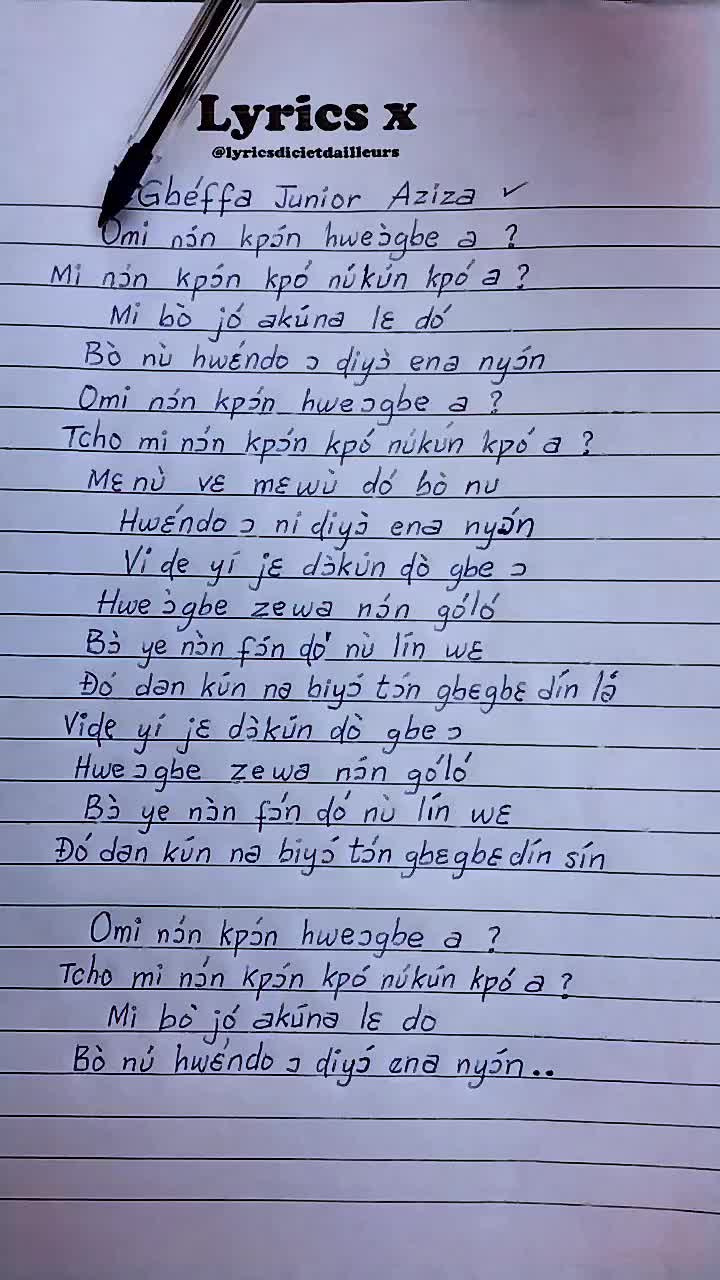 Lyrics x
@lyricsdicietdailleurs
Gbéffa Junior Aziza ✓
Omi nɔ́n kpɔ́n hweɔ̀gbe a ?
Mi nɔ́n kpɔ́n kpó núkún kpó a ?
Mi bò jó akúna lɛ dó
Bò nù hwɛ́ndo ɔ ɖiyɔ̀ ena nyɔ́n
Omi nɔ́n kpɔ́n hweɔgbe a ?
Tcho mi nɔ́n kpɔ́n kpó núkún kpó a ?
Mɛ nù vɛ mɛwù dó bò nu
Hwɛ́ndo ɔ ni ɖiyɔ̀ ena nyɔ́n
Vi ɖe yí jɛ dɔ̀kún ɖò gbe ɔ
Hwe ɔ̀gbe zewa nɔ́n góló
Bɔ̀ ye nɔ̀n fɔ́n ɖó nù lín wɛ
Đó dan kún na biyɔ́ tɔ́n gbɛgbɛ dín lá
Viɖe yí jɛ dɔ̀kún dò gbe ɔ
Hwe ɔgbe zewa nɔ́n góló
Bɔ̀ ye nɔ̀n fɔ́n dó nù lín wɛ
Đó dan kún na biyɔ́ tɔ́n gbɛgbɛ dín sín
Omi nɔ́n kpɔ́n hweɔgbe a ?
Tcho mi nɔ́n kpɔ́n kpó núkún kpó a ?
Mi bò jó akúna lɛ do
Bò nú hwɛ́ndo ɔ ɖiyɔ́ ena nyɔ́n..